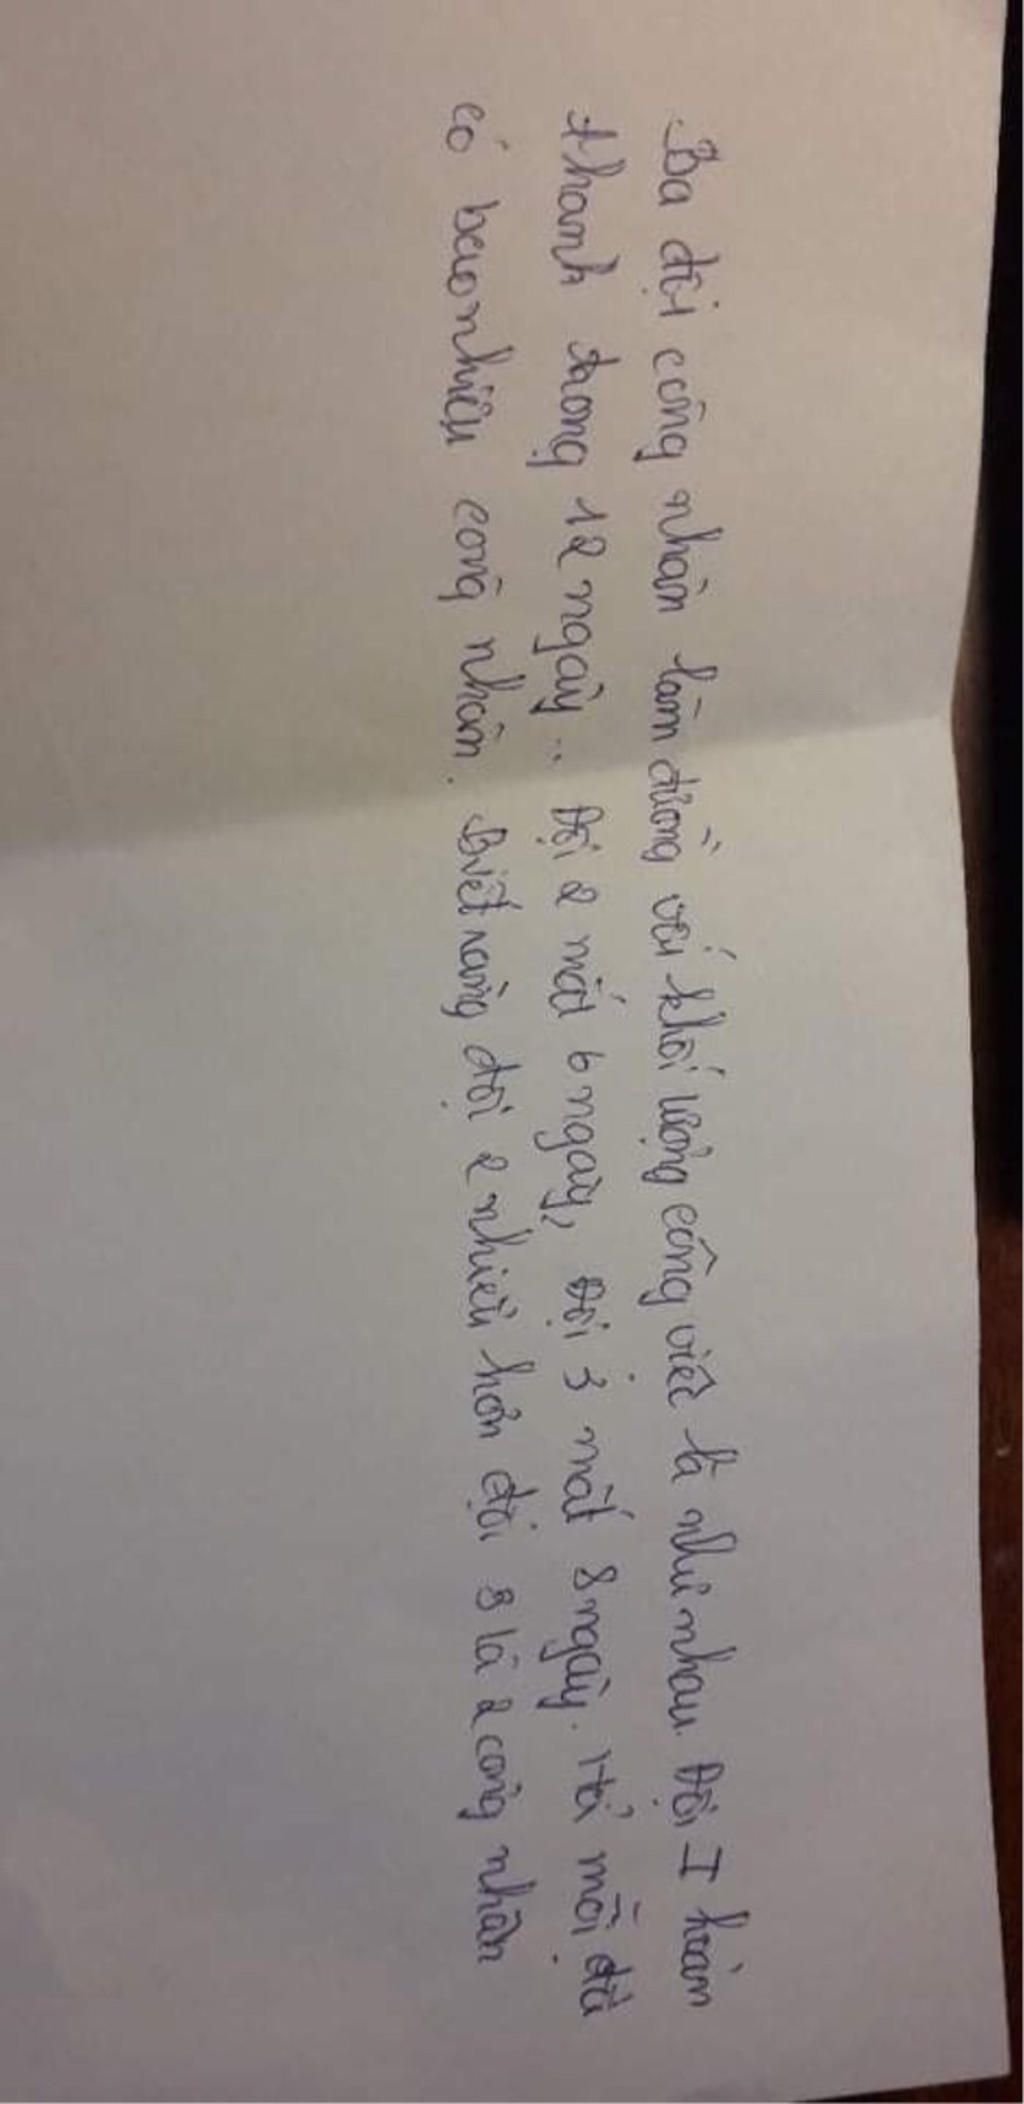 Ba đội công nhân làm đường với khối lượng công việc là như nhau. Đội I hoàn
thành trong 12 ngày.. Đội 2 mất 6 ngày, Đội 3 mất 8 ngày. Hỏi mỗi đội
có bao nhiêu công nhân. Biết rằng đội 2 nhiều hơn đội 3 là 2 công nhân